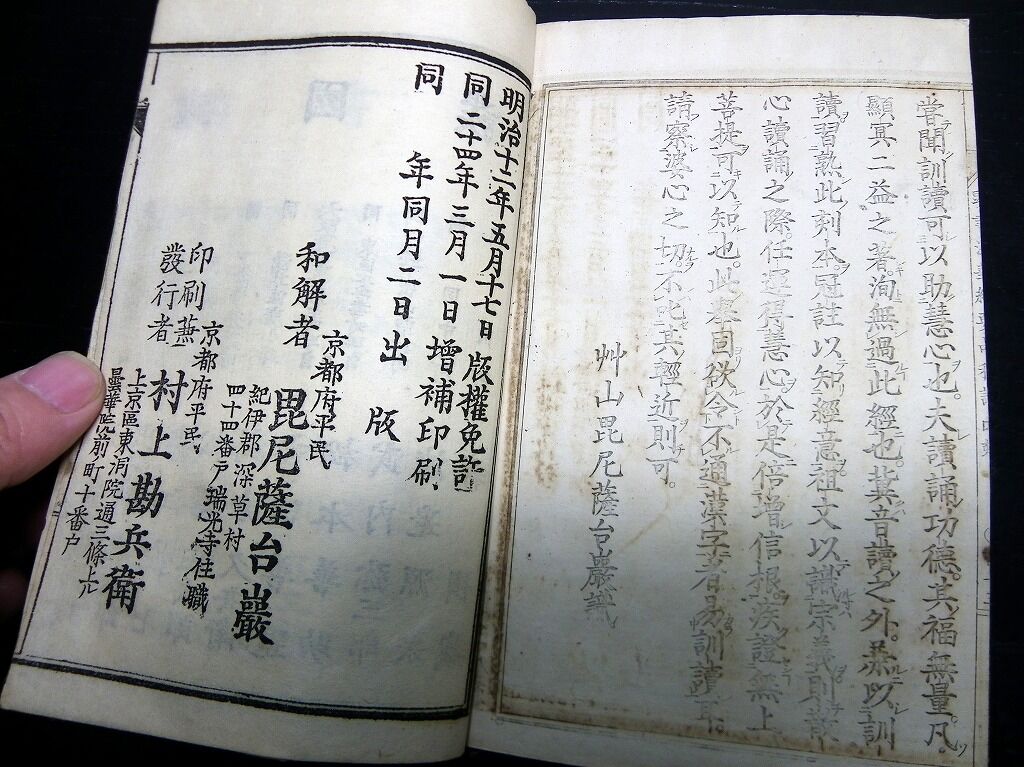 嘗聞訓讀可以助慧心也。夫讀誦功德。其福無量。凡
顯冥二益之著。洵無過此經也。冀音讀之外。兼以訓
讀習熟此刻本。冠註以知經意。祖文以識宗義。則散
心讀誦之際。任運得慧心。於是倍增信根。疾證無上
菩提可以知也。此擧固欲令不通漢字者易訓讀耳。
請察婆心之切。不叱其輕近則可。
艸山毘尼薩台巖識
明治十二年五月十七日版權免許
同二十四年三月一日增補印刷
同年同月二日出版
和解者
京都府平民
毘尼薩台巖
紀伊郡深草村
四十四番戸瑞光寺住職
印刷兼
發行者
京都府平民
村上勘兵衛
上京區東洞院通三條上ル
曇華院前町十番戸